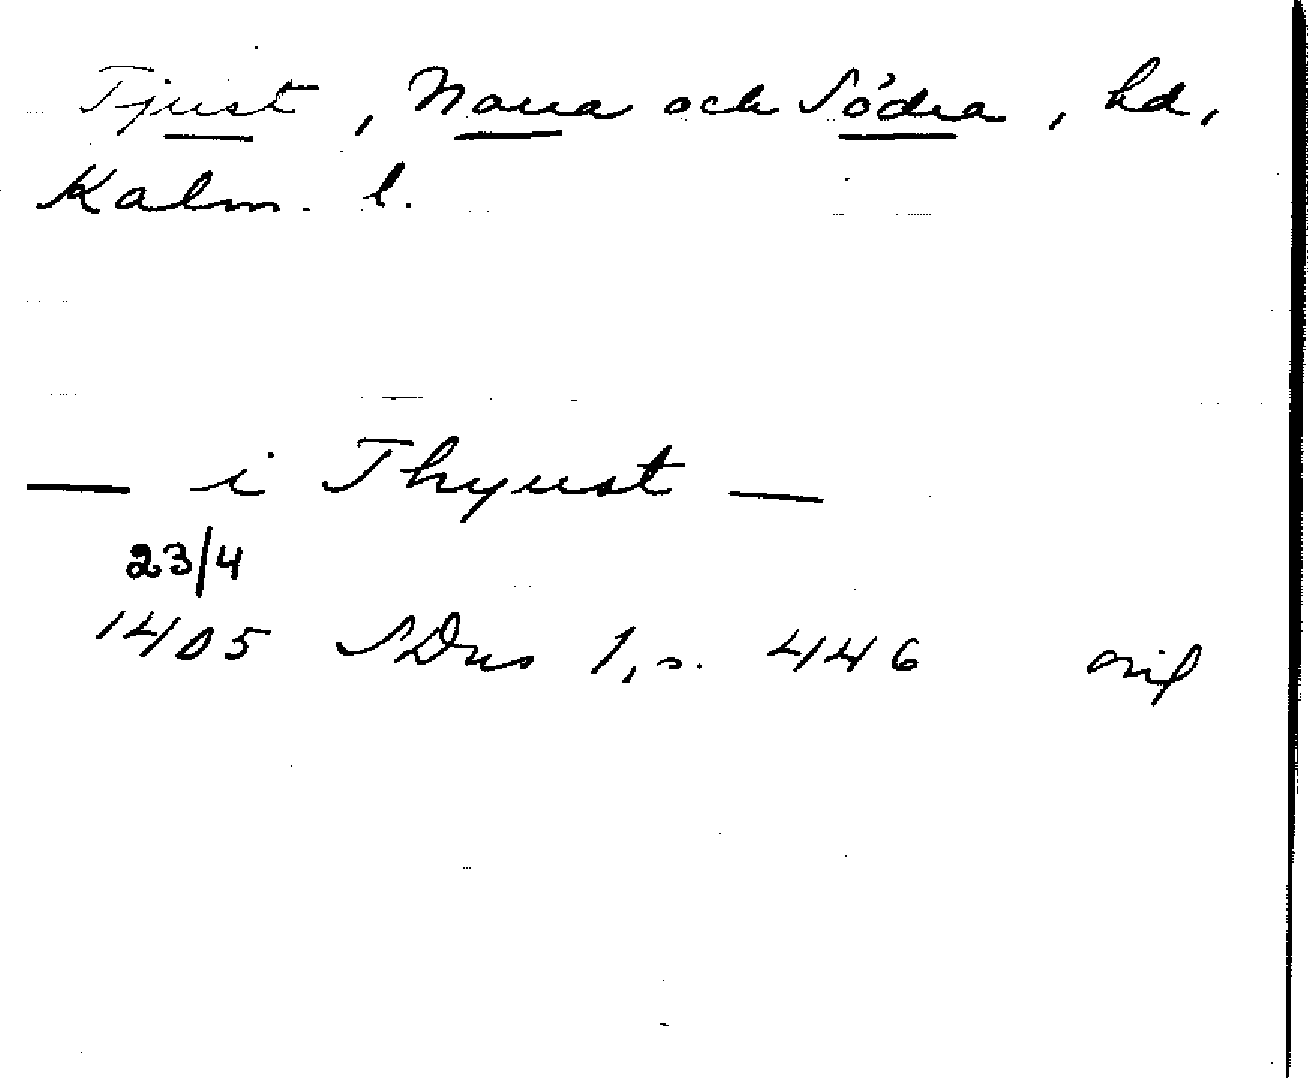 Tjust, Norra och Södra, hd,
Kalm. l.
— i Thyust —
23/4
1405 SDns 1, s. 446 orig